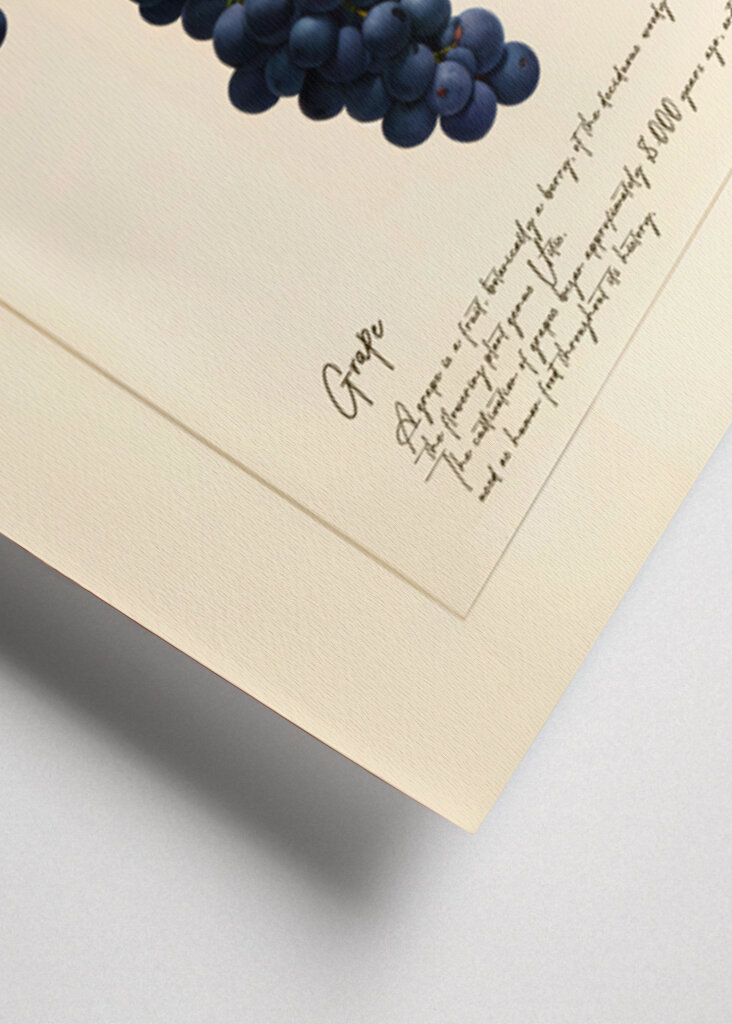 Grape
A grape is a fruit, botanically a berry, of the deciduous woody
the flowering plant genus Vitis.
The cultivation of grapes began approximately 8,000 years ago,
used as human food throughout its history.